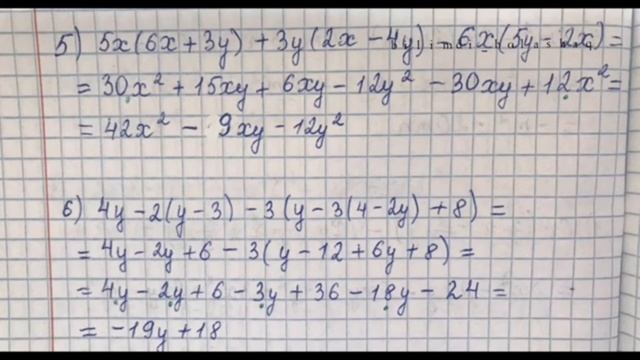 5) 5x(6x + 3y) + 3y(2x - 4y) - 6x(5y - 2x) =
= 30x² + 15xy + 6xy - 12y² - 30xy + 12x² =
= 42x² - 9xy - 12y²
6) 4y - 2(y - 3) - 3(y - 3(4 - 2y) + 8) =
= 4y - 2y + 6 - 3(y - 12 + 6y + 8) =
= 4y - 2y + 6 - 3y + 36 - 18y - 24 =
= -19y + 18